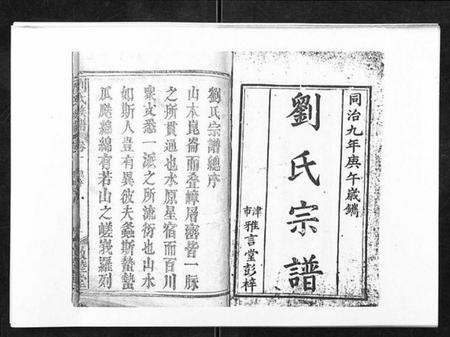 同治九年庚午歲鐫
劉氏宗譜
津市雅言堂彭梓
劉氏宗譜總序
山本崑崙而叠嶂層巒皆一脉
之所貫過也水原星宿而百川
衆支悉一派之所流衍也山水
如斯人豈有異彼夫螽斯蟄蟄
瓜瓞綿綿有若山之嵯峩羅列